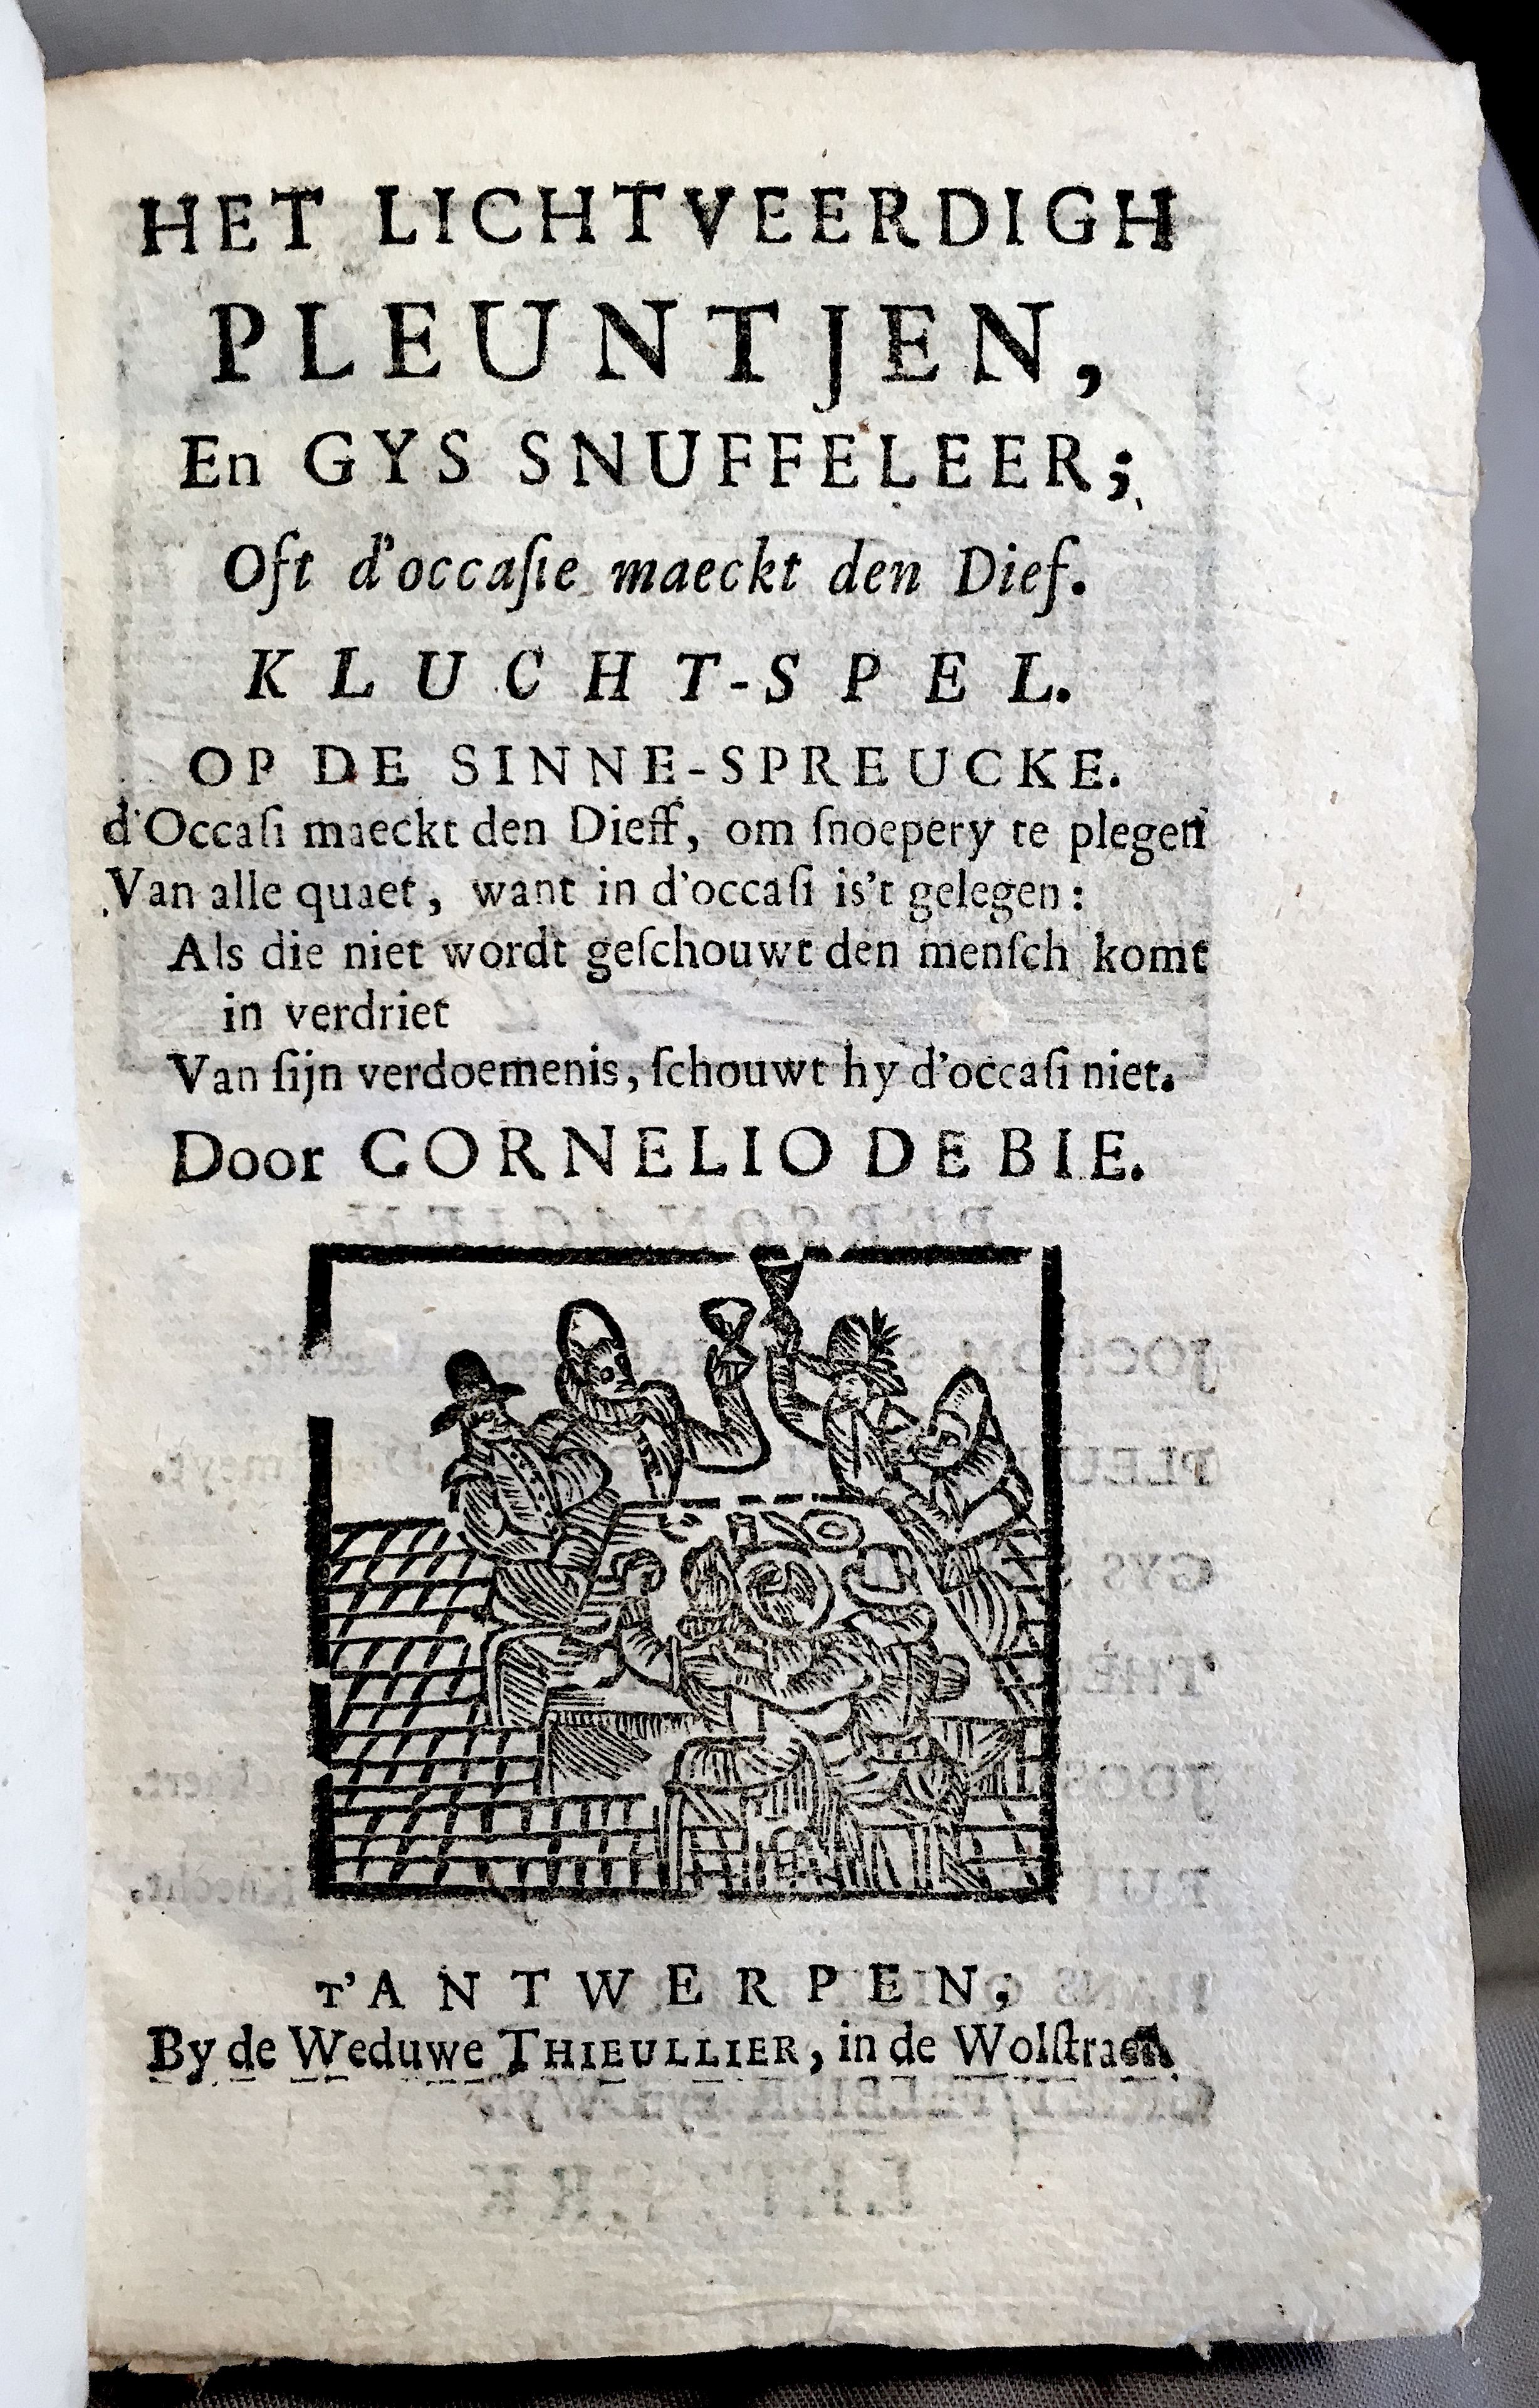 HET LICHTVEERDIGH
PLEUNTJEN,
En GYS SNUFFELEER;
Oft d'occaſie maeckt den Dief.
KLUCHT-SPEL.
OP DE SINNE-SPREUCKE.
d'Occaſi maeckt den Dieff, om ſnoepery te plegen
Van alle quaet, want in d'occaſi is't gelegen:
Als die niet wordt geſchouwt den menſch komt
in verdriet
Van ſijn verdoemenis, ſchouwt hy d'occaſi niet.
Door CORNELIO DE BIE.
T'ANTWERPEN,
By de Weduwe THIEULLIER, in de Wolſtraet